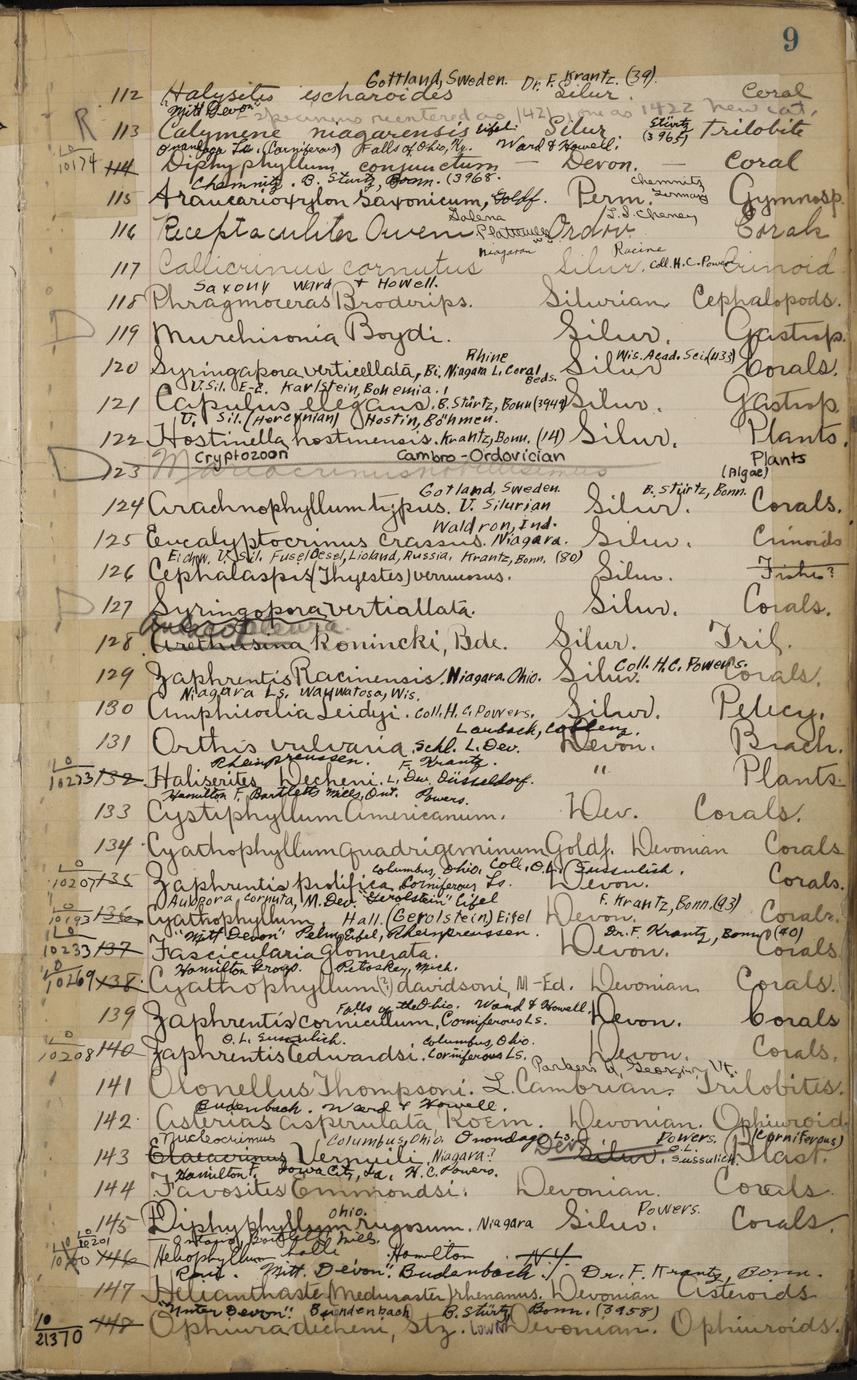 9
Gottland, Sweden. Dr. F. Krantz. (39)
112 Halysites escharoides Silur. Coral
"Mitt Devon"
R 113 Calymene niagarensis Eifel. Silur. Stürtz (3965) Trilobite
Onondaga Ls. (Corniferous) Falls of Ohio, Ky. Ward & Howell.
10174 114 Diphyphyllum conjunctum — Devon. — Coral
Chemnitz. B. Stürtz, Bonn. (3968. Chemnitz Germany
115 Araucarioxylon Saxonicum, Goldf. Perm. Gymnosp.
Galena Platteville J.J. Cheney
116 Receptaculites Oweni Ordov. Corals
Niagaran Racine
117 Callicrinus cornutus Silur. Coll. H.C. Powers Crinoid
Saxony Ward & Howell.
118 Phragmoceras Broderips. Silurian Cephalopods.
D 119 Murchisonia Boydi. Silur. Gastrop.
Rhine Wis. Acad. Sci. (433)
120 Syringapora verticellata, Bi. Niagara L. Coral Beds. Silur Corals.
U. Sil. E-2. Karlstein, Bohemia.
121 Capulus elegans. B. Stürtz, Bonn (3949) Silur. Gastrop
U. Sil. (Hercynian) Hostin, Böhmen.
122 Hostinella hostinensis. Krantz, Bonn. (14) Silur. Plants.
Cryptozoon Cambro-Ordovician Plants (Algae)
D 123
Gotland, Sweden. B. Stürtz, Bonn.
124 Arachnophyllum typus. U. Silurian Silur. Corals.
Waldron, Ind.
125 Eucalyptocrinus crassus. Niagara. Silur. Crinoids
Eichw. U. Sil. Fusel Oesel, Lioland, Russia. Krantz, Bonn. (80)
126 Cephalaspis (Thyestes) verrucosus. Silur. Fishes?
D 127 Syringopora vertiallata. Silur. Corals.
128 Arethusina Konincki, Bde. Silur. Tril.
129 Zaphrentis Racinensis. Niagara. Ohio. Silur. Coll. H.C. Powers. Corals.
Niagara Ls. Wauwatosa, Wis.
130 Amphicoelia Leidyi. Coll. H.C. Powers. Silur. Pelecy.
Laubach, Coblenz.
131 Orthis vulvaria. Schl. L. Dev. Devon. Brach.
Rheinpreussen. F. Krantz.
10273 132 Haliserites Decheni. L. Dev. Düsseldorf. " Plants.
Hamilton F. Bartletts Mills, Ont. Powers.
133 Cystiphyllum Americanum. Dev. Corals.
134 Cyathophyllum quadrigeminum Goldf. Devonian Corals
Columbus, Ohio, Coll. O.L. Sussulich.
10207 135 Zaphrentis prolifica, Corniferous Ls. Devon. Corals.
Aulopora cornuta, M. Dev. "Gerolstein" Eifel F. Krantz, Bonn. (93)
10193 136 Cyathophyllum, Hall. (Gerolstein) Eifel Devon. Corals.
"Mitt Devon" Pelm, Eifel, Rheinpreussen. Dr. F. Krantz, Bonn (40)
10233 137 Fascicularia glomerata. Devon. Corals
Hamilton Group. Petoskey, Mich.
10269 138. Cyathophyllum (?) davidsoni, M-Ed. Devonian Corals.
Falls of the Ohio. Ward & Howell.
139 Zaphrentis corniculum, Corniferous Ls. Devon. Corals
O.L. Sussulich. Columbus, Ohio.
10208 140 Zaphrentis edwardsi. Corniferous Ls. Devon. Corals.
Parkers Q. Georgia, Vt.
141 Olonellus Thompsoni. L. Cambrian. Trilobites.
Budenbach. Ward & Howell.
142. Asterias asperulata, Roem. Devonian. Ophiuroid.
Nucleocrinus Columbus, Ohio, Onondaga Ls. Powers. (Corniferous)
143 Elaeacrinus Verneuili, Niagara? Dev. Silur. O.L. Sussulich. Blast.
Hamilton F. Iowa City, Ia. H.C. Powers.
144 Favosites Emmondsi. Devonian. Corals.
Ohio. Powers.
145 Diphyphyllum rugosum. Niagara Silur. Corals.
Ontario, Bartlett Mills.
10201 146 Heliophyllum halli Hamilton N.Y.
"Mitt. Devon". Budenbach. Dr. F. Krantz, Bonn.
147 Helianthaster (Medusaster) rhenanus. Devonian Asteroids
"Unter Devon". Bundenbach B. Stürtz, Bonn. (3958)
21370 148 Ophiura decheni, Stz. Lower Devonian. Ophiuroids.